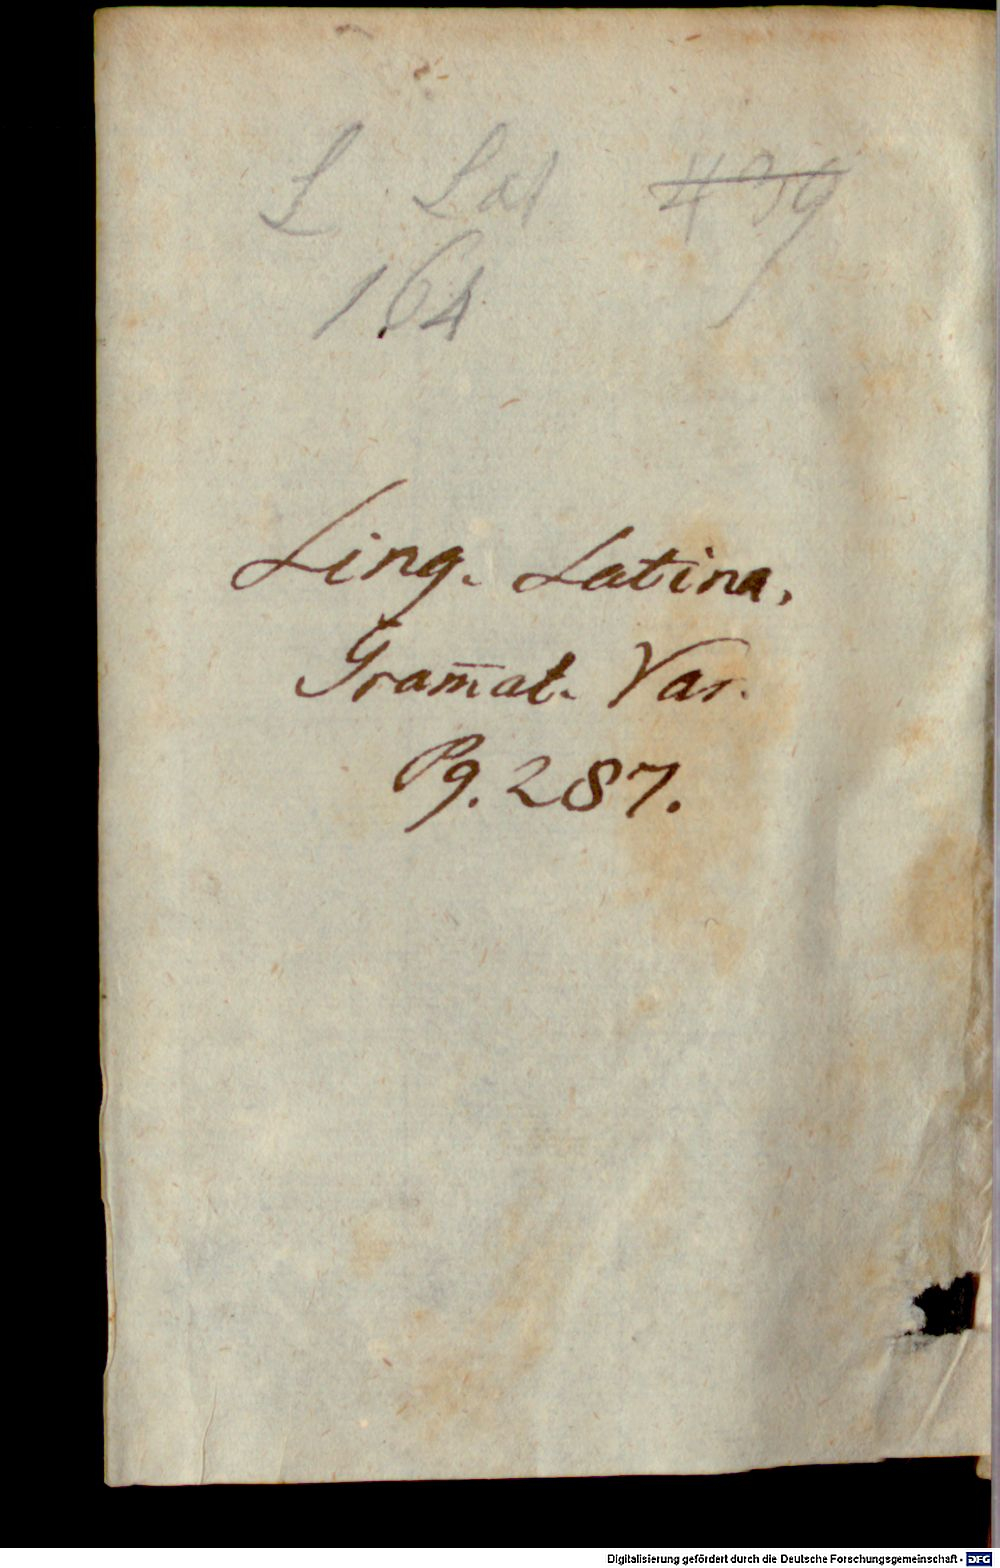 L Lat
164
Ling. Latina.
Gram̅at. Var.
Pg. 287.
Digitalisierung gefördert durch die Deutsche Forschungsgemeinschaft - DFG